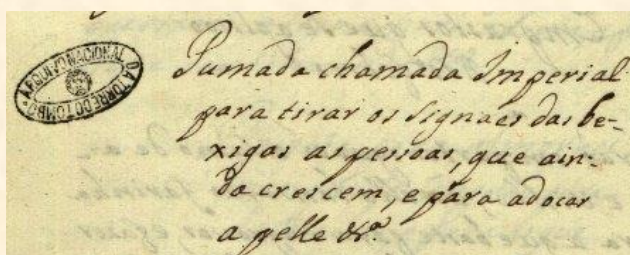 ARQUIVO NACIONAL DA TORRE DO TOMBO
Pumada chamada Imperial
para tirar os signaes das be-
xigas as pessoas, que ain-
da crescem, e para adocar
a pelle &ª